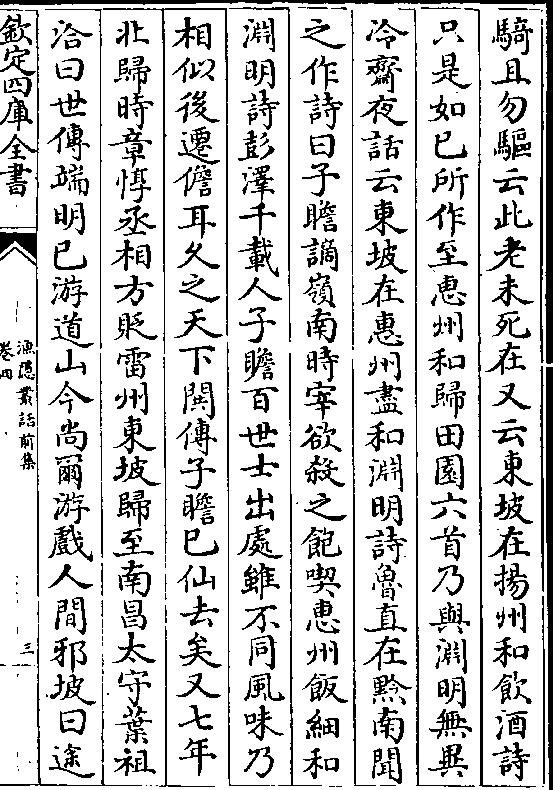 騎且勿驅云此老未死在又云東坡在揚州和飲酒詩
只是如已所作至惠州和歸田園六首乃與淵明無異
冷齋夜話云東坡在惠州盡和淵明詩魯直在黔南聞
之作詩曰子瞻謫嶺南時宰欲殺之飽喫惠州飯細和
淵明詩彭澤千載人子瞻百世士出處雖不同風味乃
相似後遷儋耳久之天下鬨傳子瞻已仙去矣又七年
北歸時章惇丞相方貶雷州東坡歸至南昌太守葉祖
洽曰世傳端明已游道山今尚爾游戲人間邪坡曰途
欽定四庫全書
漁隱叢話前集
卷四
三